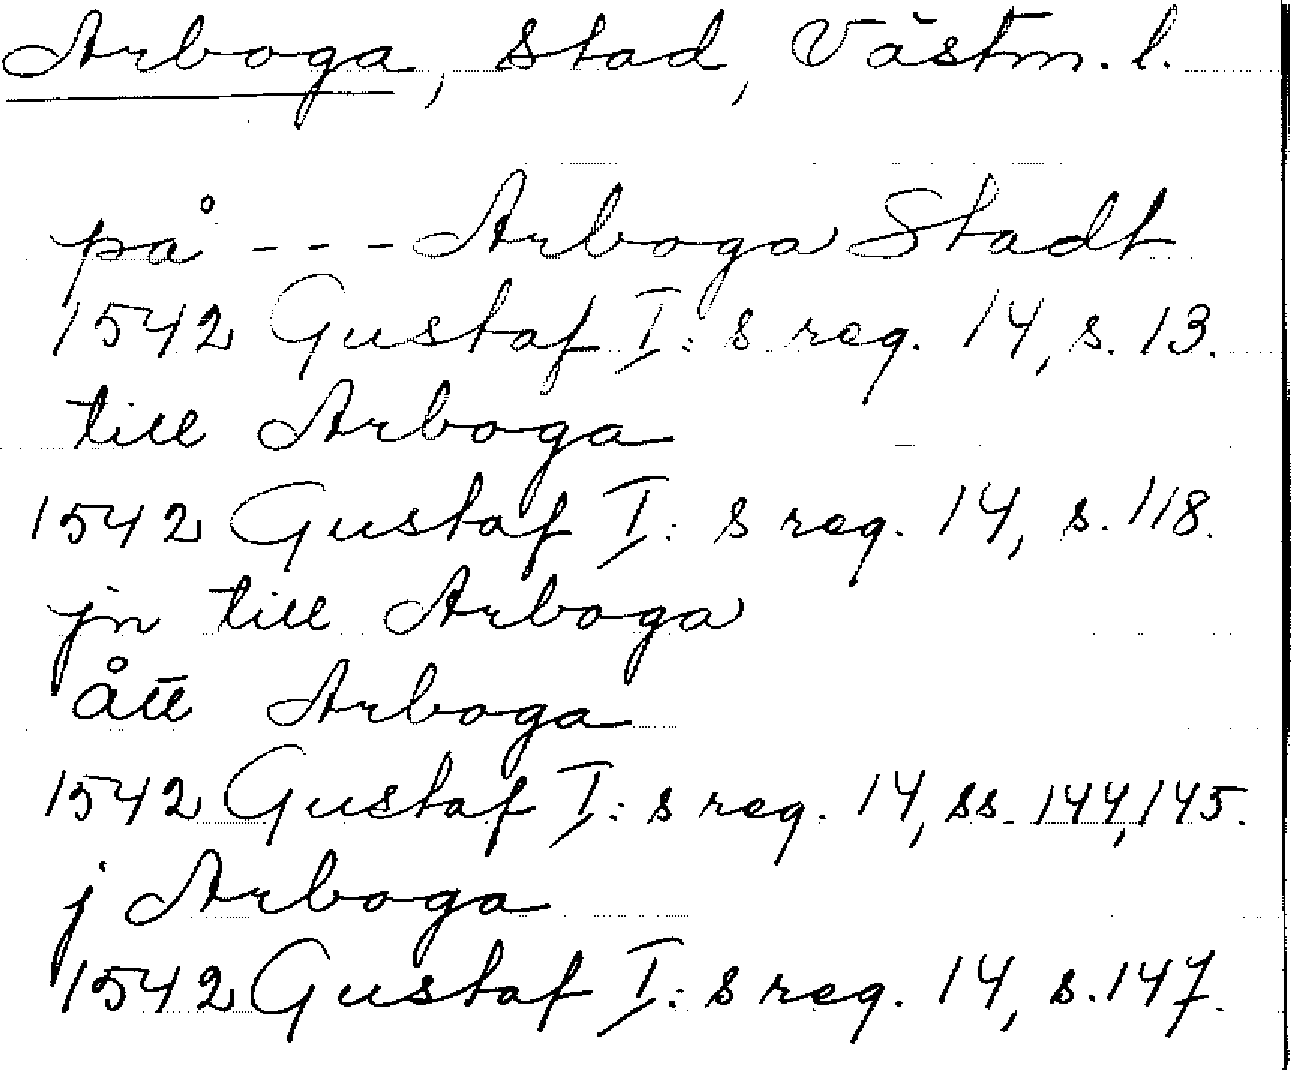 Arboga, stad, Västm. l.
på --- Arboga Stadt
1542 Gustaf I:s reg. 14, s. 13.
till Arboga
1542 Gustaf I:s reg. 14, s. 118.
jn till Arboga
ått Arboga
1542 Gustaf I:s reg. 14, ss. 144, 145.
j Arboga
1542 Gustaf I:s reg. 14, s. 147.